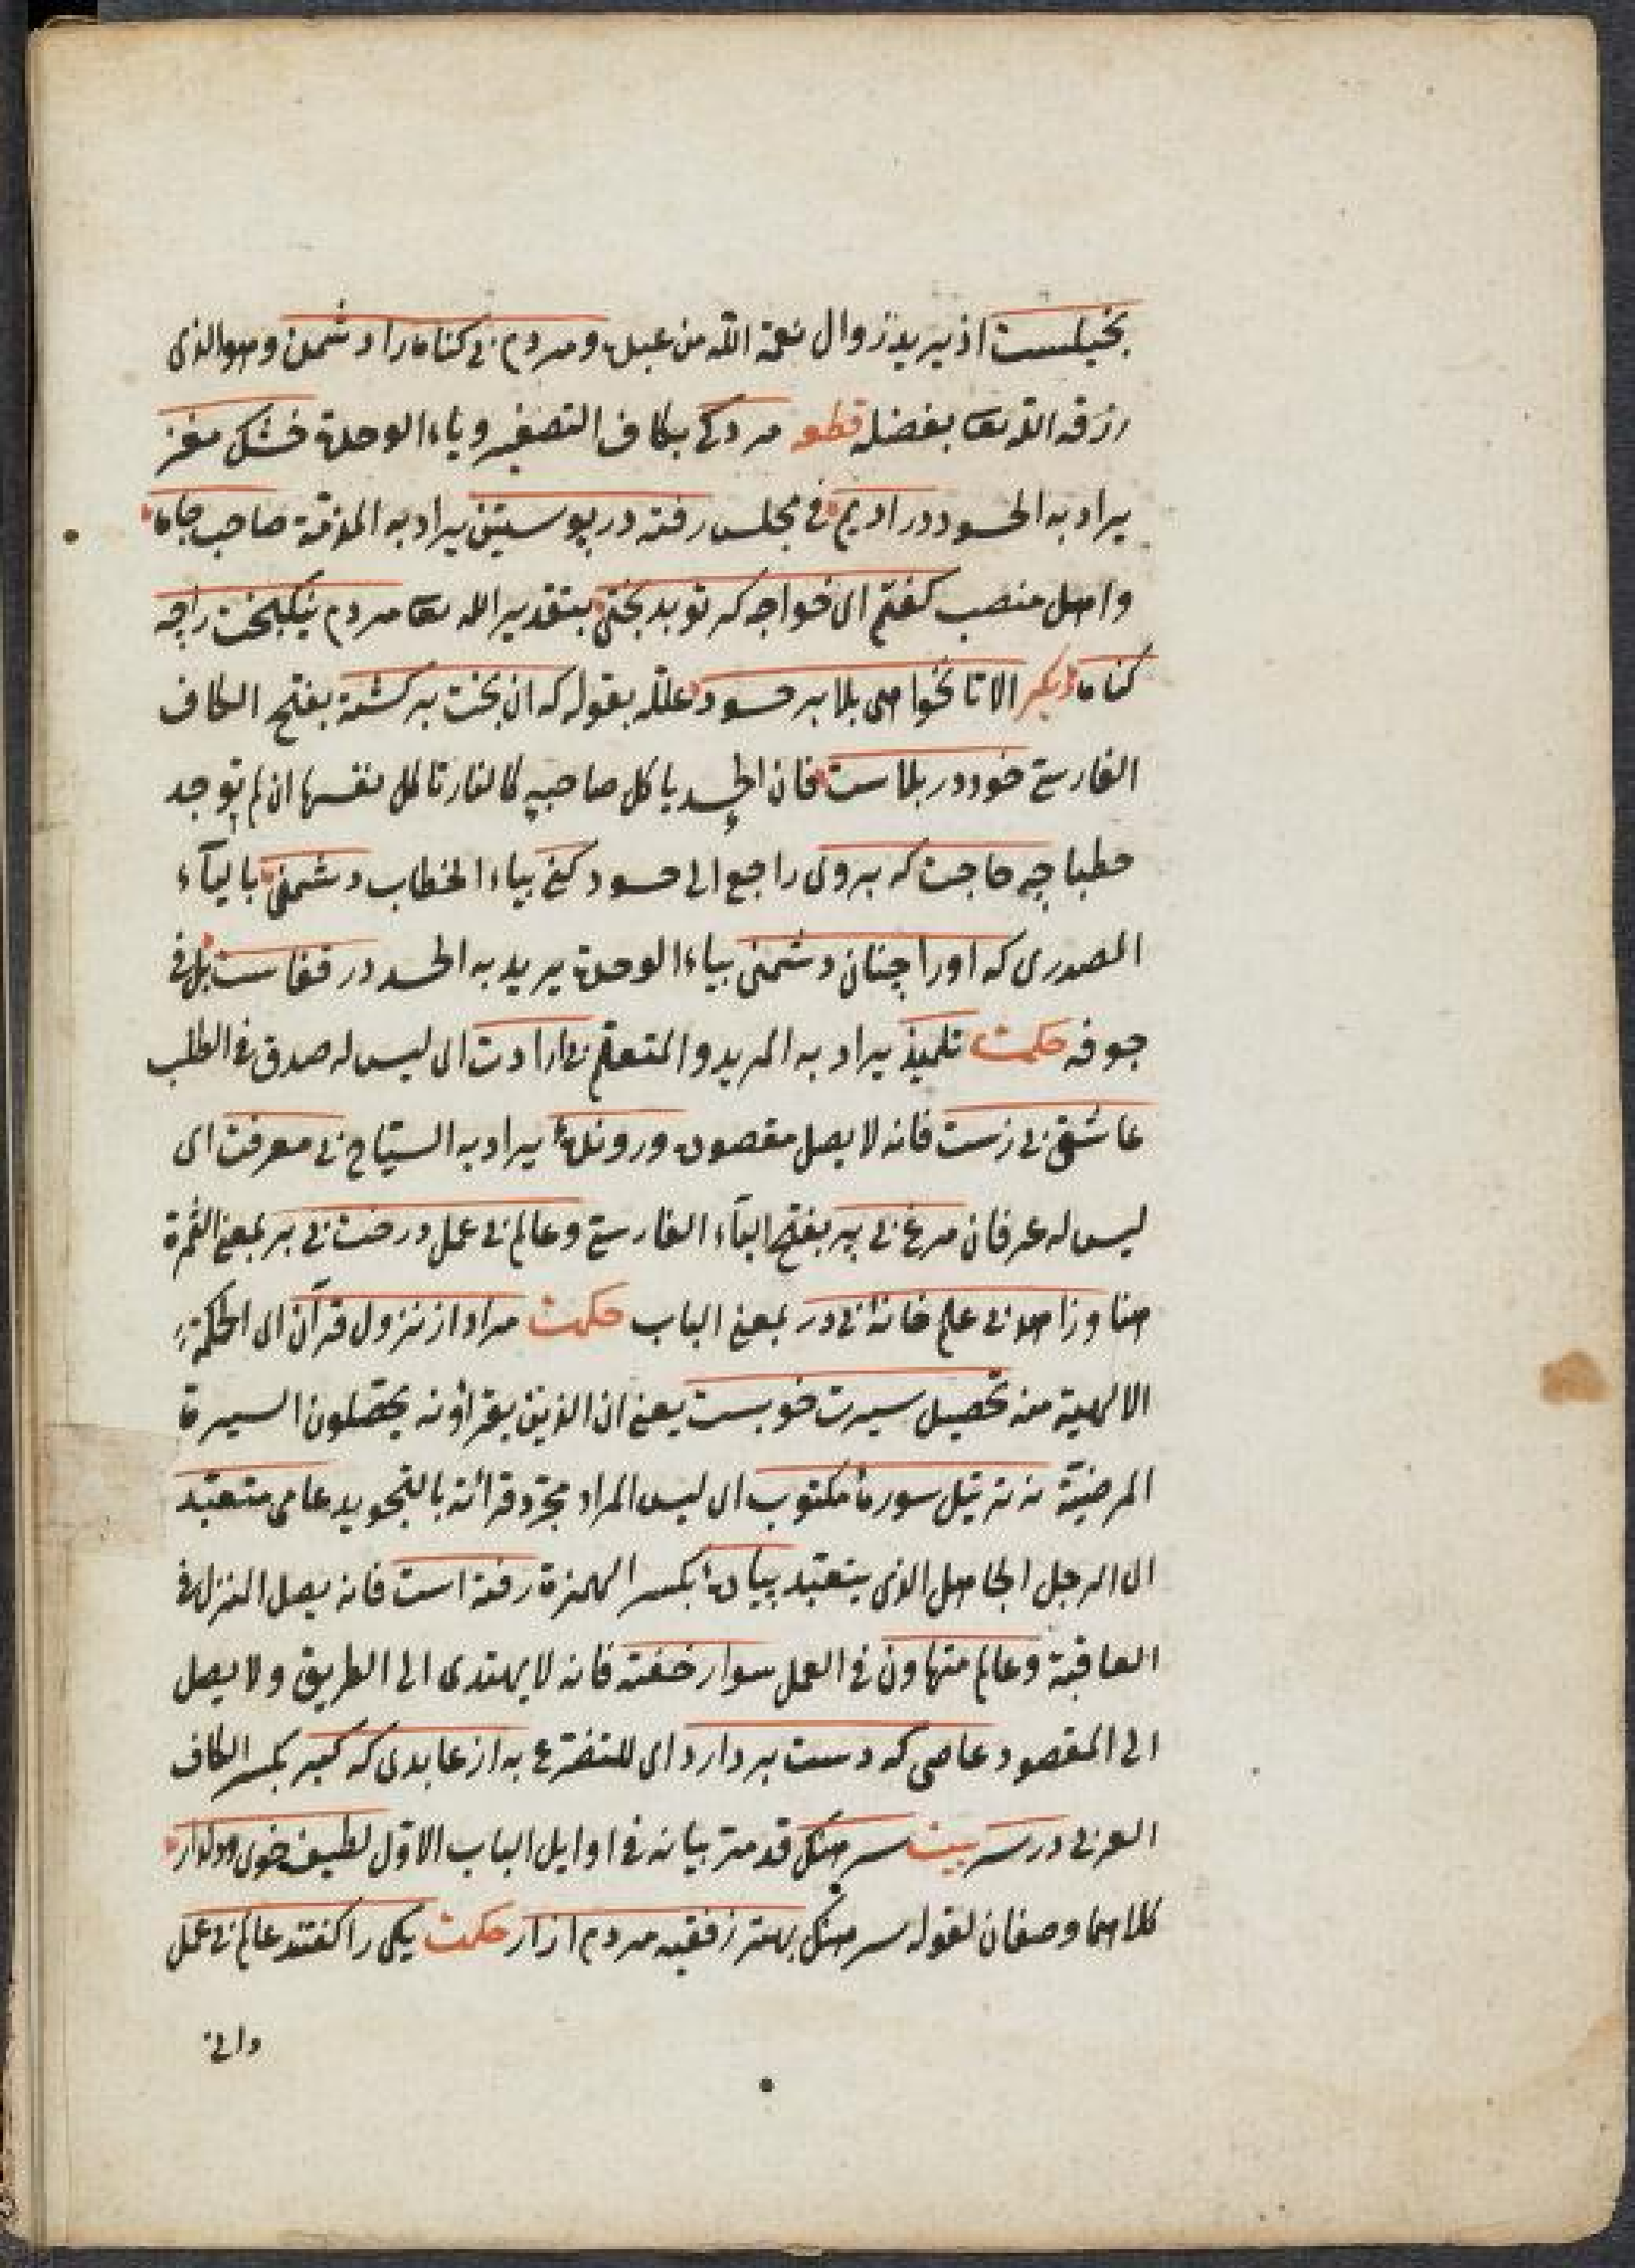 بخیلست اذ یرید زوال نعمة الله من عبده ومردم بی کناه را دشمن وهو الذی
رزقه الله تعا بفضله قطعه مردکی بکاف التصغیر ویاء الوحدة خشک مغز
یراد به الحسود درا دیدم فی مجلس رفته در پوستین یراد به المذمة صاحب جاه
واهل منصب کفتم ای خواجه کر تو بدبختی بتقدیر الله تعا مردم نیکبخت را چه
کناه دیکر الا تا نخواهی بلا بر حسود علله بقوله که ان بخت بر کشته بفتح الکاف
الفارسی خود در بلاست فان الحسد یاکل صاحبه کالنار تاکل نفسها ان لم توجد
حطبا چه حاجت که بروی راجع الی حسود کنی بیاء الخطاب دشمنی بالیاء
المصدری که اورا چنان دشمنی بیاء الوحدة یرید به الحسد در قفاست بل فی
جوفه حکمت تلمیذ یراد به المرید والمتعلم بی ارادت ای لیس له صدق فی الطلب
عاشق بی زرست فانه لا یصل مقصوده ورونده یراد به السیاح بی معرفت ای
لیس له عرفان مرغ بی پر بفتح الباء الفارسی وعالم بی عمل درخت بی بر بمعنی الثمرة
هنا وزاهد بی علم خانه بی در بمعنی الباب حکمت مراد از نزول قرآن ای الحکمة
الالهیة منه تحصیل سیرت خوبست یعنی ان الذین یقراؤنه یحصلون السیرة
المرضیة نه ترتیل سوره مکتوب ای لیس المراد مجرد قرائته بالتجوید عامی متعبد
ای الرجل الجاهل الذی یتعبد پیاده بکسر الهمزة رفته است فانه یصل المنزل فی
العاقبة وعالم متهاون فی العمل سوار خفته فانه لا یهتدی الی الطریق ولا یصل
الی المقصود عاصی که دست بردارد ای للتضرع به از عابدی که کبر بکسر الکاف
العربی در سر بیت سرهنک قد مر بیانه فی اوایل الباب الاول لطیف خوی ودلدار
کلاهما وصفان لقوله سرهنک بهتر ز فقیه مردم ازار حکمت یکی را کفتند عالم بی عمل